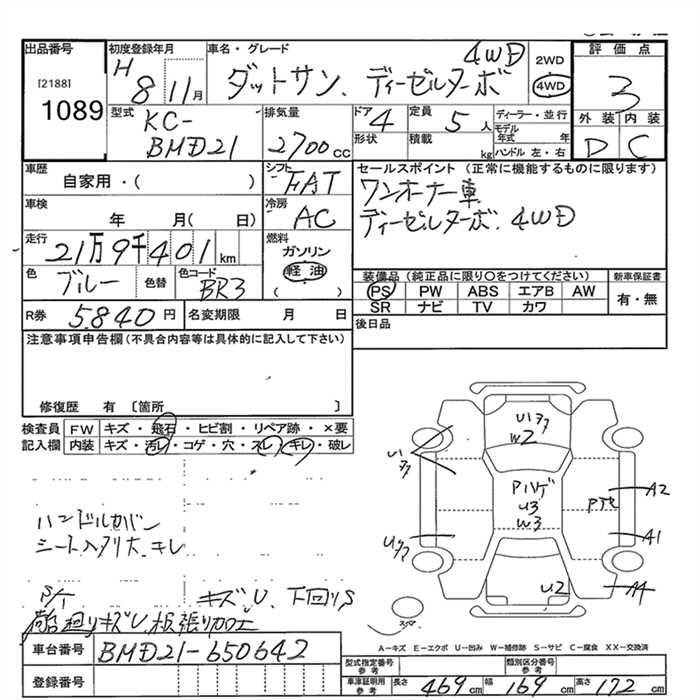 出品番号
[2188]
1089
初度登録年月
H 8 11月
車名・グレード
ダットサン、ディーゼルターボ 4WD
2WD
4WD
評価点
3
外装 内装
D C
型式
KC-
BMD21
排気量
2700 CC
ドア 4
形状
定員 5人
積載 kg
ディーラー・並行
モデル年式 年
ハンドル 左・右
車歴
自家用・( )
シフト FAT
車検
年 月( 日)
冷房 AC
走行
21万9千401km
燃料
ガソリン
軽油
( )
色 ブルー
色替
色コード BR3
R券 5,840円
名変期限 月 日
セールスポイント(正常に機能するものに限ります)
ワンオーナー車
ディーゼルターボ、4WD
装備品(純正品に限り○をつけてください)
PS PW ABS エアB AW
SR ナビ TV カワ
新車保証書
有・無
後日品
注意事項申告欄(不具合内容等は具体的に記入して下さい)
修復歴 有〔箇所 〕
検査員記入欄
FW キズ・飛石・ヒビ割・リペア跡・×要
内装 キズ・汚レ・コゲ・穴・スレ・キレ・破レ
ハンドルカバー
シート入り大、キレ
S/T
キズU、下回りS
廻りキズU、板張り加工
U1ヌタ
W2
U1
ヌタ
Pハゲ
U3
W3
A2
A1
U2
A4
スペア
A-キズ E-エクボ U-凹み W-補修跡 S-サビ C-腐食 XX-交換済
車台番号 BMD21-650642
登録番号
型式指定番号 参考
類別区分番号 参考
車庫証明用 参考
長さ 469cm 幅 169cm 高さ 172cm